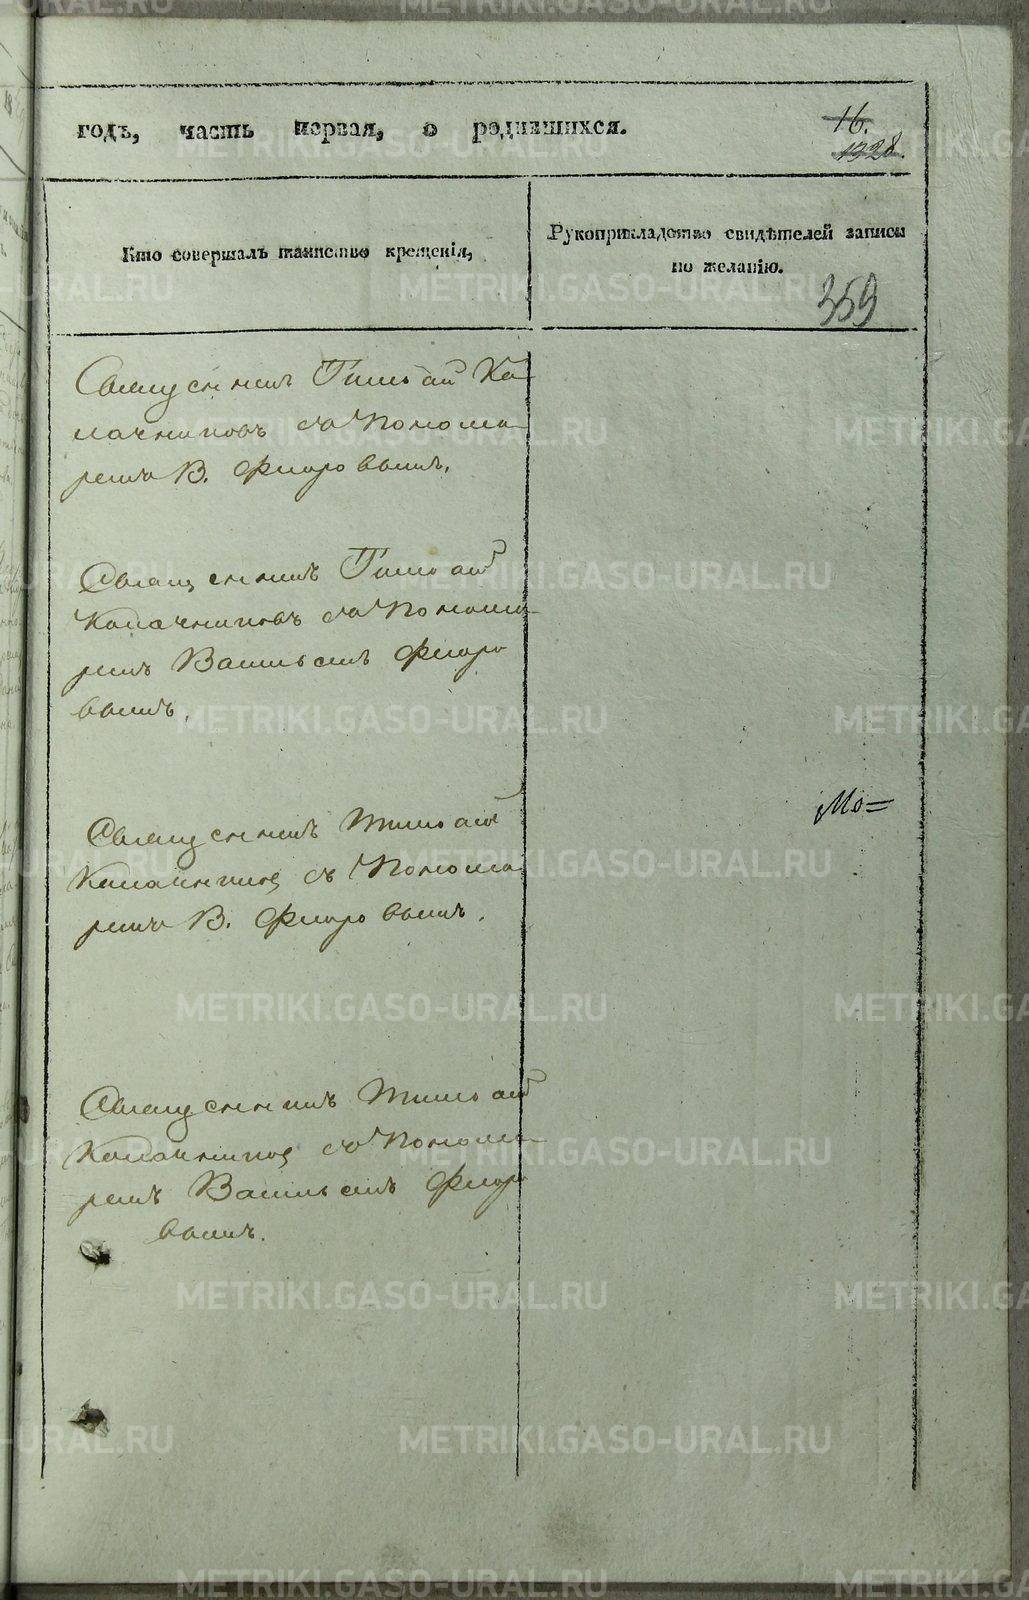 годъ, часть первая, о родившихся.
16.
1328.
Кто совершалъ таинство крещенія,
Рукоприкладство свидѣтелей записи
по желанію.
359
Священникъ Тимоѳей Ка
лачниковъ съ Понома
ремъ В. Флоровымъ.
Священникъ Тимоѳей
Калачниковъ съ Понома
ремъ Васильемъ Флоро
вымъ.
Священникъ Тимоѳей
Калачников съ Понома
ремъ В. Флоровымъ.
Мо=
Священникъ Тимоѳей
Калачников съ Понома
ремъ Васильемъ Флоро
вымъ.
METRIKI.GASO-URAL.RU